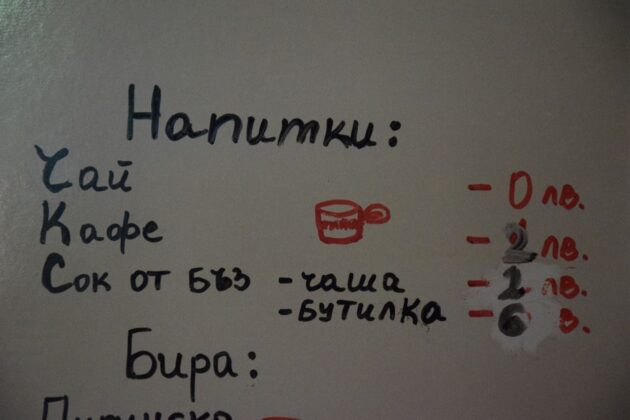 Напитки:
Чай - 0 лв.
Кафе - 2 лв.
Сок от бъз - чаша - 1 лв.
- бутилка - 6 в.
Бира: